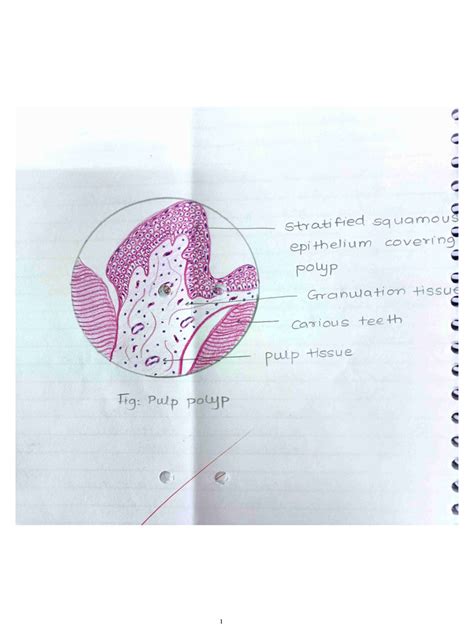 Stratified squamous
epithelium covering
polyp
Granulation tissue
Carious teeth
pulp tissue
Fig: Pulp polyp
1